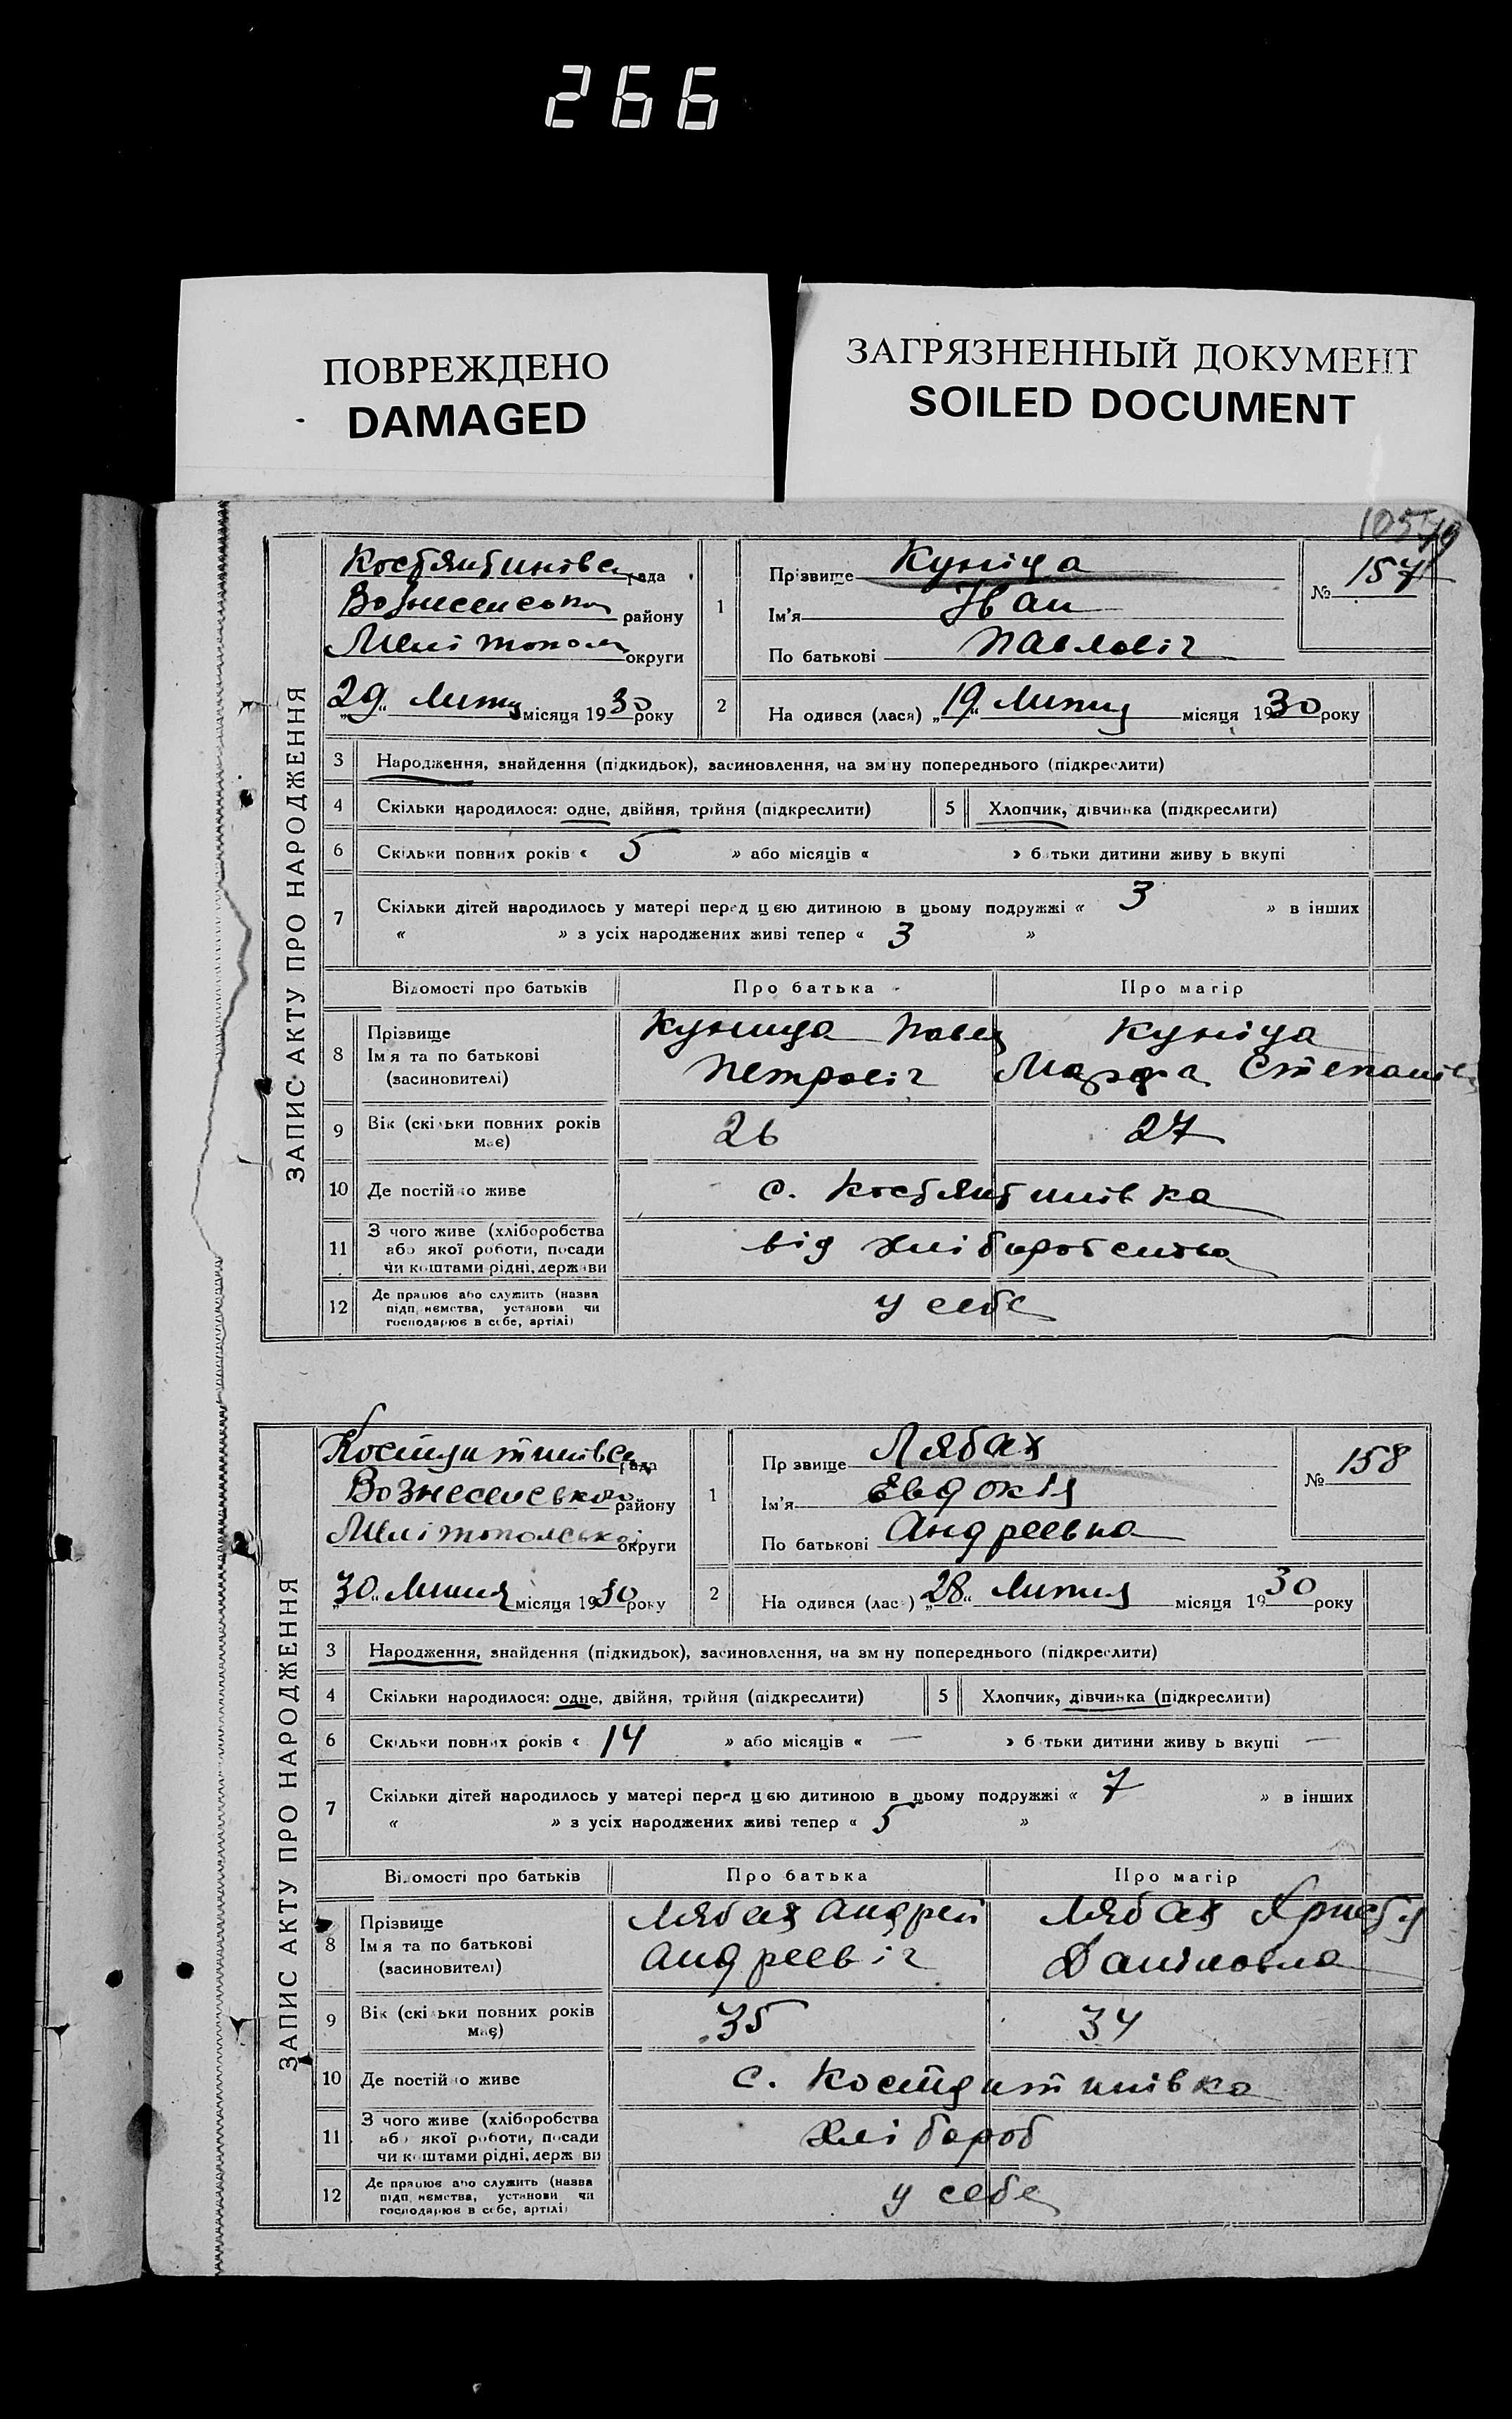 266
ПОВРЕЖДЕНО
DAMAGED
ЗАГРЯЗНЕННЫЙ ДОКУМЕНТ
SOILED DOCUMENT
ЗАПИС АКТУ ПРО НАРОДЖЕННЯ
Костянтинівс рада
Вознесенського району
Мелітополь округи
„29“ Липня місяця 1930 року
1
Прізвище Куніца
Ім'я Іван
По батькові Павловіч
№ 157
2
На одився (лася) „19“ Липня місяця 1930 року
3 Народження, знайдення (підкидьок), засиновлення, на зміну попереднього (підкреслити)
4 Скільки народилося: одне, двійня, трійня (підкреслити) 5 Хлопчик, дівчинка (підкреслити)
6 Скільки повних років « 5 » або місяців « » б тьки дитини живу ь вкупі
7 Скільки дітей народилось у матері перед цією дитиною в цьому подружжі « 3 » в інших
« » з усіх народжених живі тепер « 3 »
Відомості про батьків Про батька Про матір
8 Прізвище
Ім'я та по батькові
(засиновителі)
Куница Павел
Петровіч
Куніца
Марфа Степанівн
9 Вік (скільки повних років має) 26 27
10 Де постійно живе с. Костянтинівка
11 З чого живе (хліборобства
або якої роботи, посади
чи коштами рідні, держави
від хліборобства
12 Де працює або служить (назва
підп иємства, установи чи
господарює в себе, артілі)
у себе
ЗАПИС АКТУ ПРО НАРОДЖЕННЯ
Костянтинівс рада
Вознесенського району
Мелітопольської округи
„30“ Липня місяця 1930 року
1
Пр звище Лябах
Ім'я Евдокія
По батькові Андреевна
№ 158
2
На одився (лас ) „28“ Липня місяця 1930 року
3 Народження, знайдення (підкидьок), засиновлення, на зм ну попереднього (підкреслити)
4 Скільки народилося: одне, двійня, трійня (підкреслити) 5 Хлопчик, дівчинка (підкреслити)
6 Скільки повних років « 14 » або місяців « — » б тьки дитини живу ь вкупі —
7 Скільки дітей народилось у матері перед цією дитиною в цьому подружжі « 7 » в інших
« » з усіх народжених живі тепер « 5 »
Відомості про батьків Про батька Про матір
8 Прізвище
Ім'я та по батькові
(засиновителі)
Лябах Андрей
Андреевіч
Лябах Христя
Даніловна
9 Вік (скільки повних років має) 35 34
10 Де постійно живе с. Костянтинівка
11 З чого живе (хліборобства
або якої роботи, посади
чи коштами рідні, держ ви
хлібороб
12 Де працює або служить (назва
підп иємства, установи чи
господарює в себе, артілі)
у себе